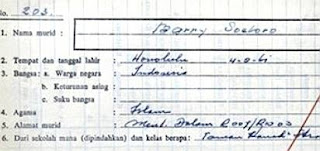 No. 203.
1. Nama murid : Barry Soetoro
2. Tempat dan tanggal lahir : Honolulu 4-8-61
3. Bangsa: a. Warga negara : Indonesia
b. Keturunan asing :
c. Suku bangsa :
4. Agama : Islam
5. Alamat murid : Ment. Dalam R007/R003
6. Dari sekolah mana (dipindahkan) dan kelas berapa: